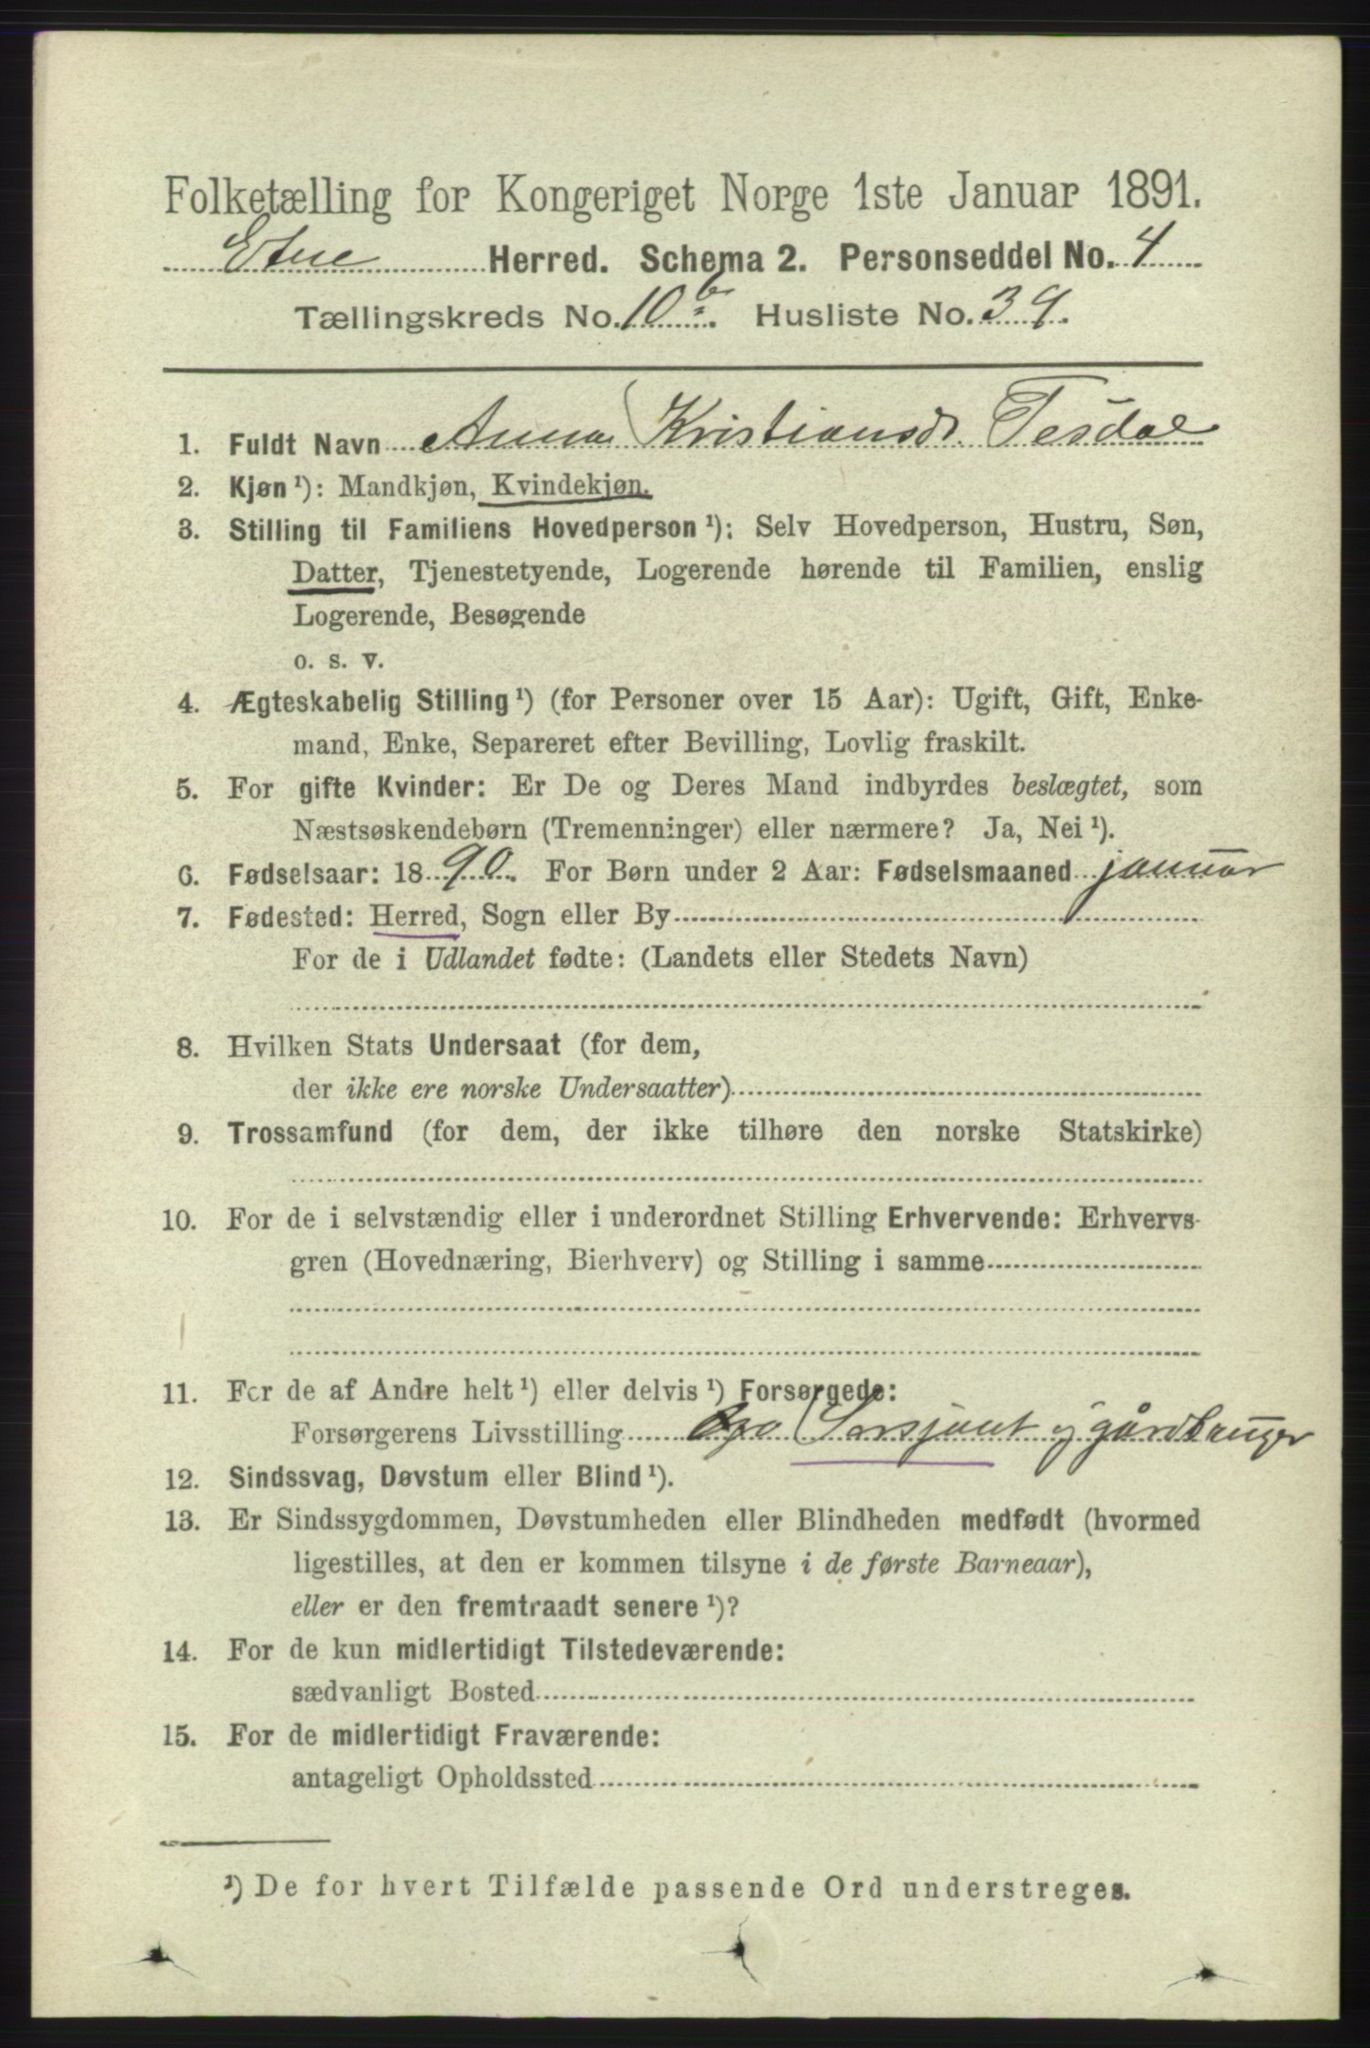 Folketælling for Kongeriget Norge 1ste Januar 1891.
Etne Herred. Schema 2. Personseddel No. 4
Tællingskreds No. 10 b. Husliste No. 39.
1. Fuldt Navn Anna Kristiansdr. Tesdal
2. Kjøn ¹): Mandkjøn, Kvindekjøn.
3. Stilling til Familiens Hovedperson ¹): Selv Hovedperson, Hustru, Søn,
Datter, Tjenestetyende, Logerende hørende til Familien, enslig
Logerende, Besøgende
o. s. v.
4. Ægteskabelig Stilling ¹) (for Personer over 15 Aar): Ugift, Gift, Enke-
mand, Enke, Separeret efter Bevilling, Lovlig fraskilt.
5. For gifte Kvinder: Er De og Deres Mand indbyrdes beslægtet, som
Næstsøskendebørn (Tremenninger) eller nærmere? Ja, Nei ¹).
6. Fødselsaar: 1890. For Børn under 2 Aar: Fødselsmaaned januar
7. Fødested: Herred, Sogn eller By
For de i Udlandet fødte: (Landets eller Stedets Navn)
8. Hvilken Stats Undersaat (for dem,
der ikke ere norske Undersaatter)
9. Trossamfund (for dem, der ikke tilhøre den norske Statskirke)
10. For de i selvstændig eller i underordnet Stilling Erhvervende: Erhvervs-
gren (Hovednæring, Bierhverv) og Stilling i samme
11. For de af Andre helt ¹) eller delvis ¹) Forsørgede:
Forsørgerens Livsstilling Sersjant g gårdbruger
12. Sindssvag, Døvstum eller Blind ¹).
13. Er Sindssygdommen, Døvstumheden eller Blindheden medfødt (hvormed
ligestilles, at den er kommen tilsyne i de første Barneaar),
eller er den fremtraadt senere ¹)?
14. For de kun midlertidigt Tilstedeværende:
sædvanligt Bosted
15. For de midlertidigt Fraværende:
antageligt Opholdssted
¹) De for hvert Tilfælde passende Ord understreges.